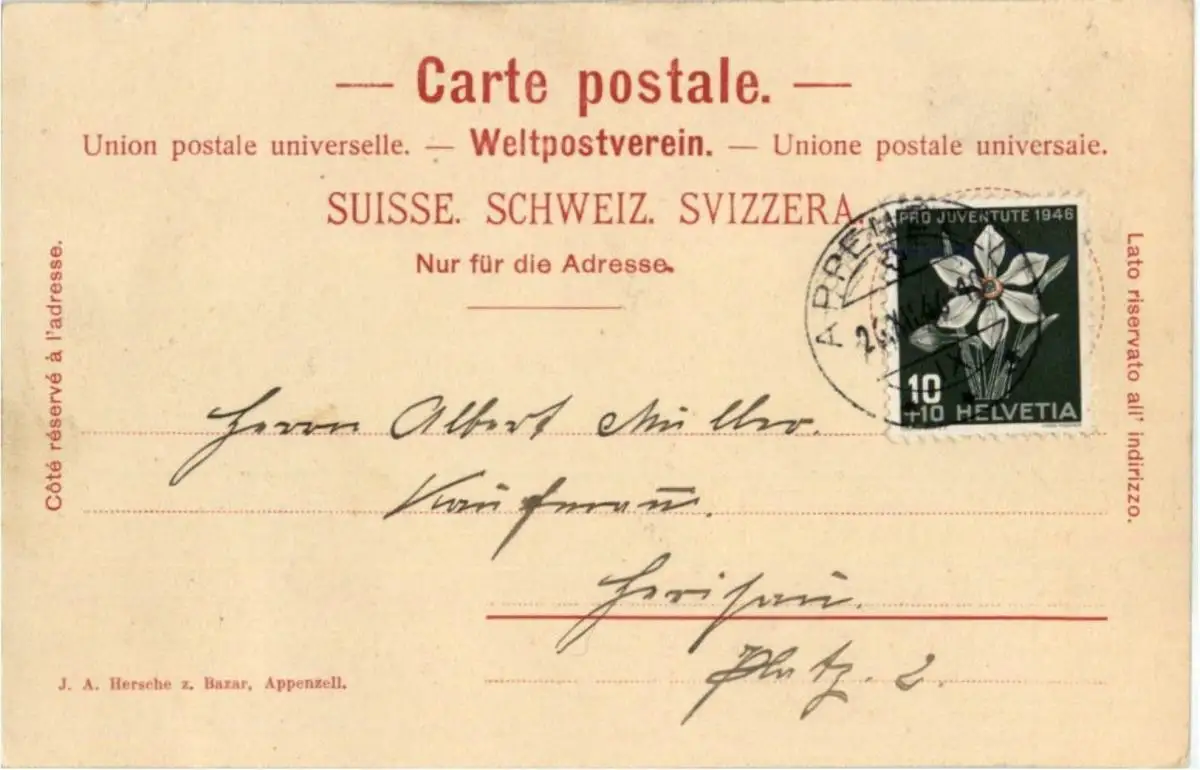 — Carte postale. —
Union postale universelle. — Weltpostverein. — Unione postale universaie.
SUISSE. SCHWEIZ. SVIZZERA.
Nur für die Adresse.
Côté réservé à l'adresse.
Lato riservato all' indirizzo.
PRO JUVENTUTE 1946
10
+10 HELVETIA
APPENZ
Herrn Albert Müller.
Kaufmann.
Herisau.
Platz. 2.
J. A. Hersche z. Bazar, Appenzell.